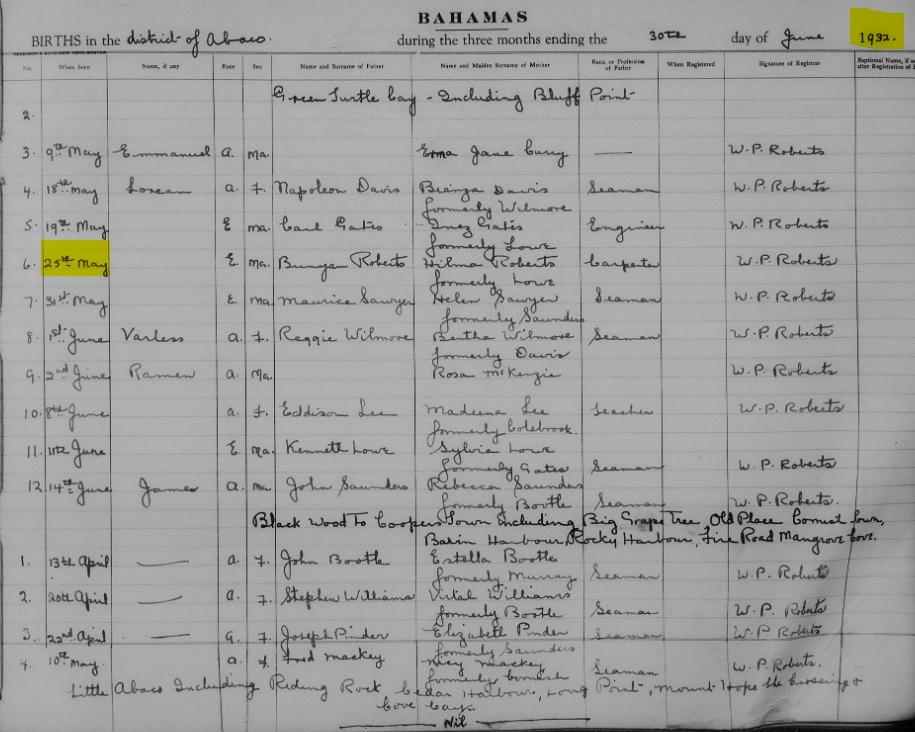 BAHAMAS
BIRTHS in the district of Abaco. during the three months ending the 30th day of June 1932.
No. When born Name, if any Race Sex Name and Surname of Father Name and Maiden Surname of Mother Rank or Profession of Father When Registered Signature of Registrar Baptismal Name, if
after Registration of
Green Turtle Cay - Including Bluff Point
2.
3. 9th May Emmanuel a. ma. Erma Jane Curry — W. P. Roberts
4. 18th May Lorean a. f. Napoleon Davis Bianza Davis Seaman W. P. Roberts
formerly Wilmore
5. 19th May E ma. Carl Gates Inez Gates Engineer W. P. Roberts
formerly Lowe
6. 25th May E. ma. Bunyan Roberts Hilma Roberts Carpenter W. P. Roberts
formerly Lowe
7. 31st May E. ma. Maurice Sawyer Helen Sawyer Seaman W. P. Roberts
formerly Saunders
8. 1st June Varless a. f. Reggie Wilmore Bertha Wilmore Seaman W. P. Roberts
formerly Davis
9. 2nd June Ramen a. ma. Rosa McKenzie W. P. Roberts
10. 8th June a. f. Eddison Lee Madeena Lee Teacher W. P. Roberts
formerly Colebrook.
11. 11th June E. ma. Kenneth Lowe Sylvia Lowe
formerly Gates Seaman W. P. Roberts
12. 14th June James a. ma. John Saunders Rebecca Saunders
formerly Bootle Seaman W. P. Roberts.
Black Wood To Coopers Town Including Big Grape Tree, Old Place Cornish Town,
Basin Harbour, Rocky Harbour, Fire Road Mangrove Cove.
1. 13th April — a. f. John Bootle Estella Bootle
formerly Murray Seaman W. P. Roberts
2. 20th April — a. f. Stephen Williams Vistal Williams
formerly Bootle Seaman W. P. Roberts
3. 22nd April — a. f. Joseph Pinder Elizabeth Pinder Seaman W. P. Roberts
formerly Saunders
4. 10th May. a. f. Fred Mackey Mackey
formerly Cornish Seaman W. P. Roberts.
Little Abaco Including Riding Rock, Cedar Harbour, Long Point, Mount Hope the Crossing &
Cove Cays.
Nil